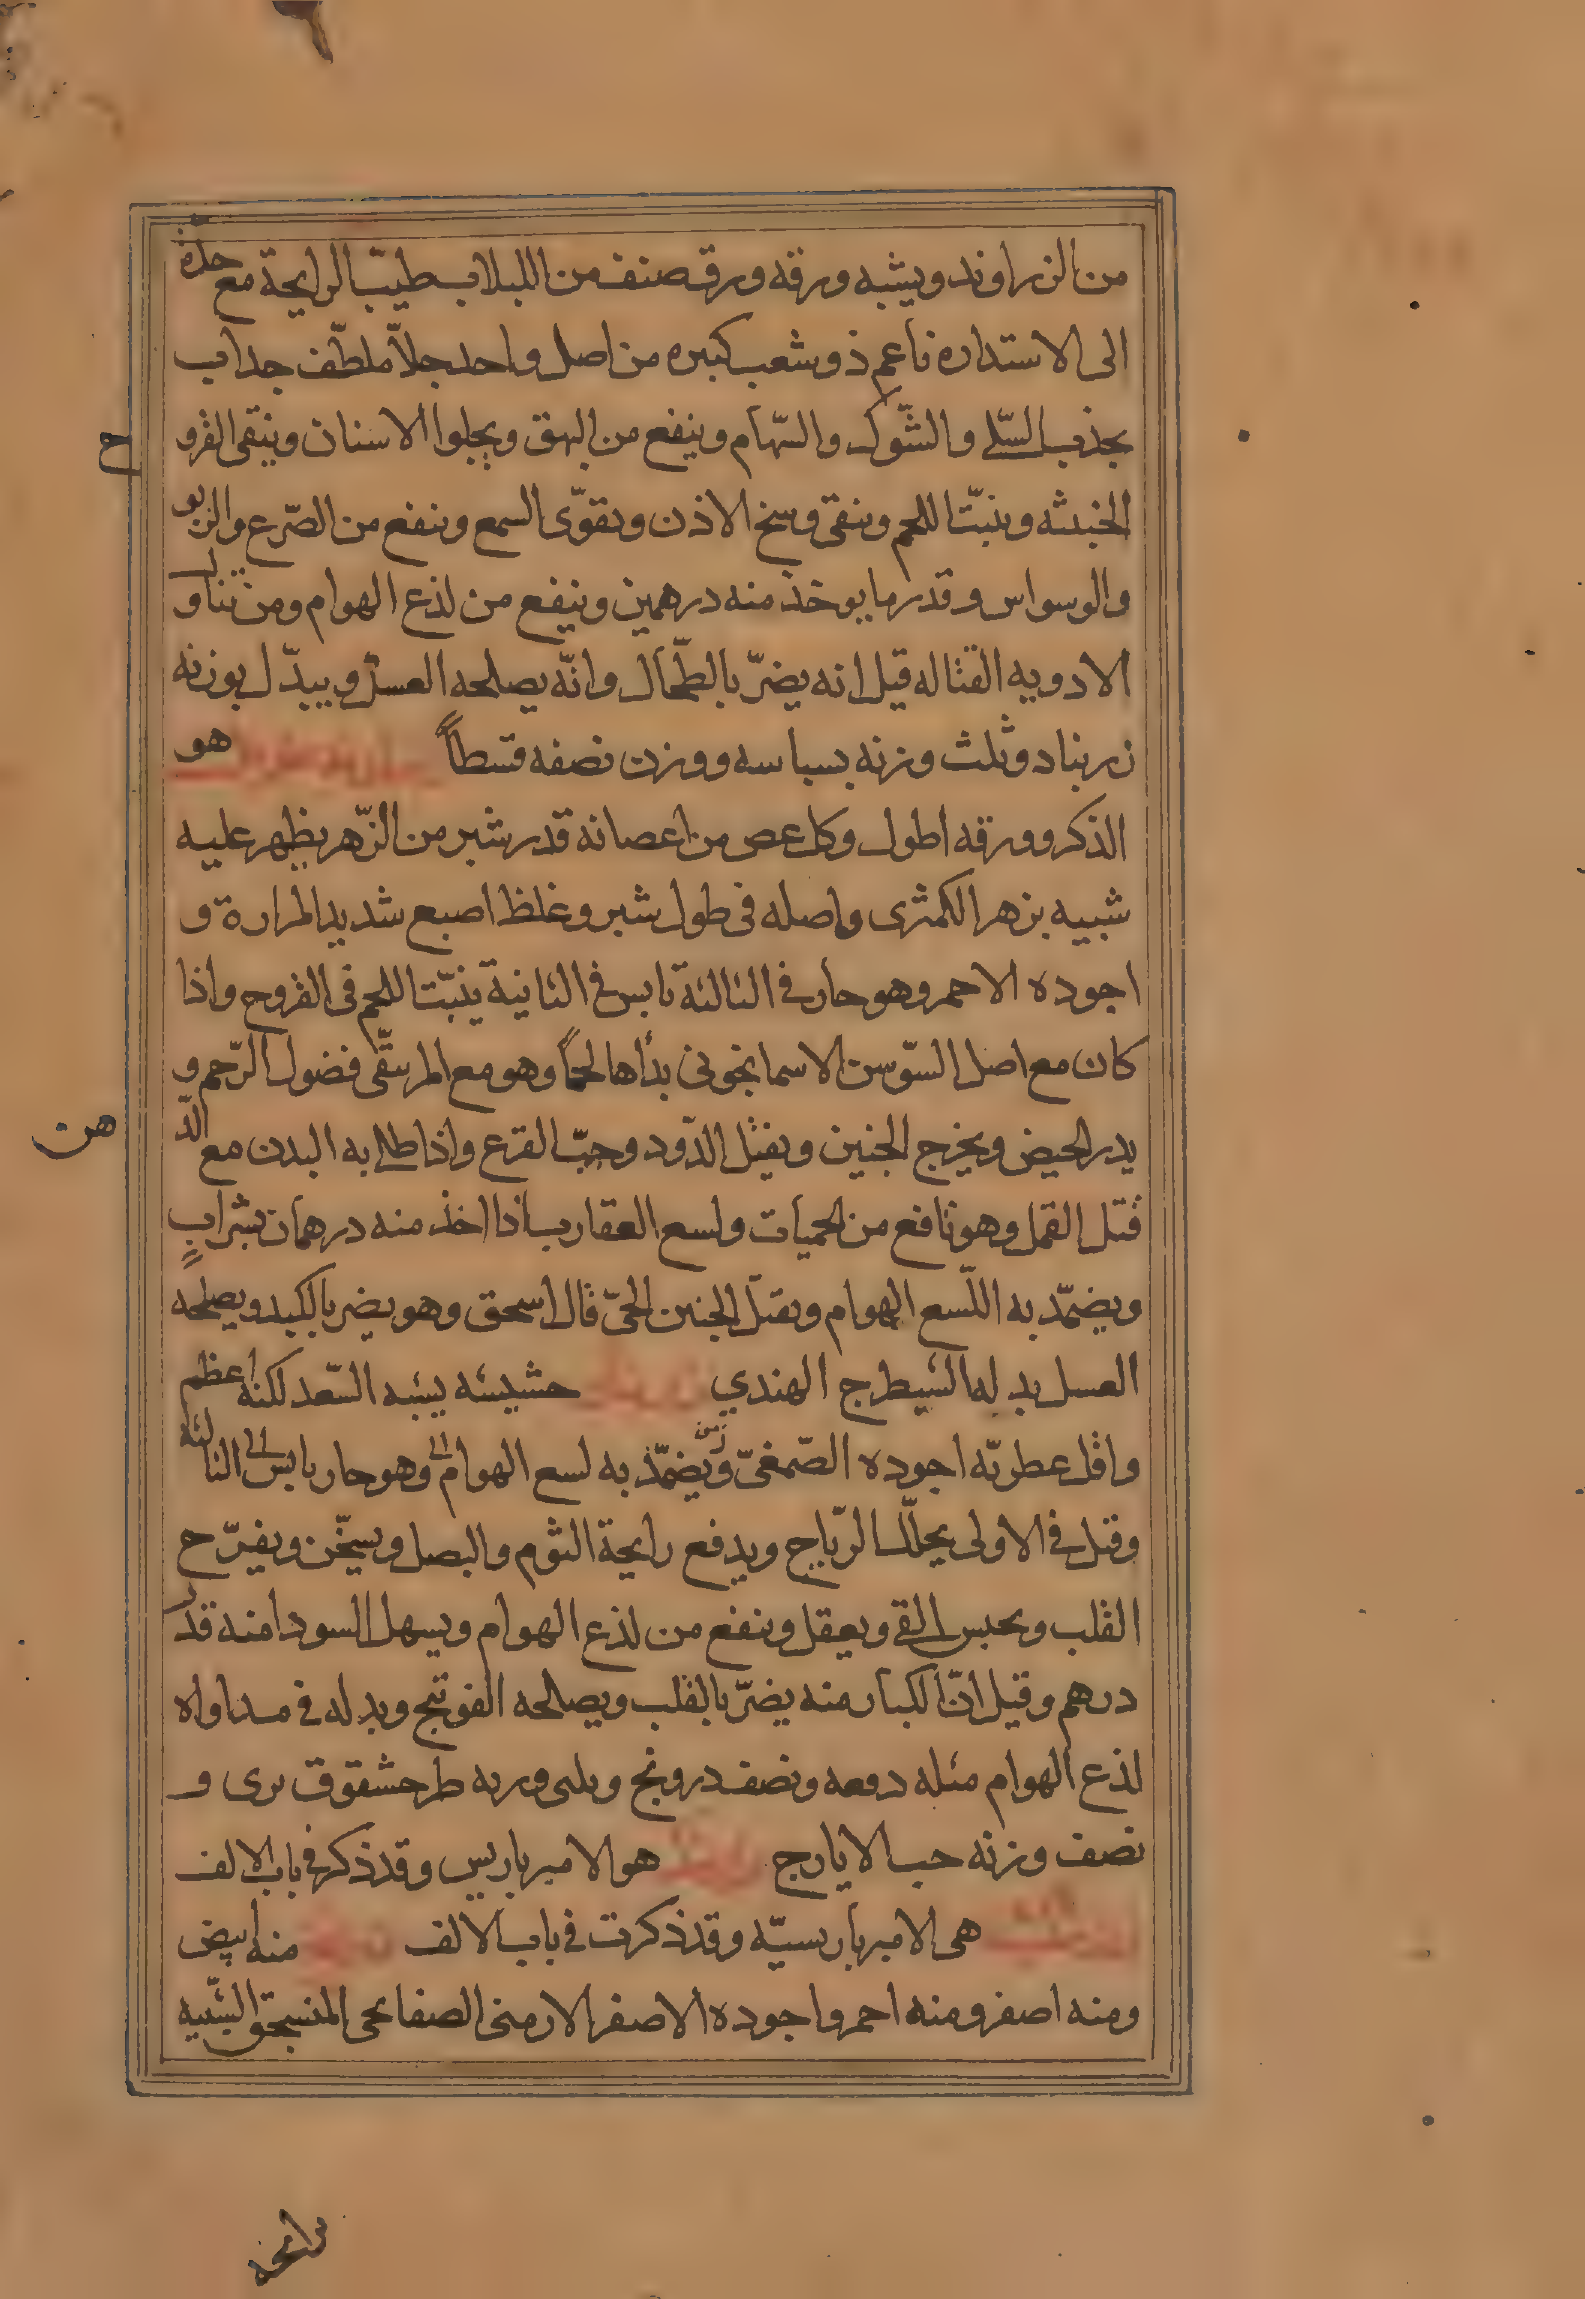 من الزراوند ويشبه ورقه ورق صنف من اللبلاب طيب الرايحة مع حدة
الى الاستداره ناعم ذو شعب كبيره من اصل واحد جلا ملطف جذاب
يجذب السلى والشوك والسهام وينفع من البهق ويجلوا الاسنان وينقى القرو
ح
الخبيثه وينبت اللحم وينقى وسخ الاذن ويقوى السمع وينفع من الصرع والربو
والوسواس وقدر ما يوخذ منه درهمين وينفع من لذع الهوام ومن تناول
الادويه القتاله قيل انه يضر بالطحال وانه يصلحه العسل ويبدل بوزنه
زرنباد وثلث وزنه بسباسه ووزن نصفه قسطا هو
الذكر وورقه اطول وكل عصن من اعصانه قدر شبر من الزهر يظهر عليه
شبيه بزهر الكمثرى واصله فى طول شبر وغلظ اصبع شديد المرارة و
اجوده الاحمر وهو حار فى الثالثة يابس فى الثانية ينبت اللحم فى القروح واذا
كان مع اصل السوسن الاسمانجونى بدأها لحما وهو مع المر ينقى فضول الرحم و
يدر الحيض ويخرج الجنين ويقتل الدود وحب القرع واذا طلى به البدن مع الد
هن
قتل القمل وهو نافع من الحميات ولسع العقارب اذا اخذ منه درهمان بشراب
ويضمد به اللسع الهوام ويقتل الجنين الحى قال اسحق وهو يضر بالكبد ويصلحه
العسل بدله الشيطرج الهندي حشيشه يشبه السعد لكنه اعظم
واقل عطريه اجوده الصمغى ويضمد به لسع الهوام وهو حار يابس الى الثالثه
وقيل فى الاولى يحلل الرياح ويدفع رايحة الثوم والبصل ويسخن ويفرح
القلب ويحبس القى ويعقل وينفع من لذع الهوام ويسهل السودا منه قدر
درهم وقيل ان الكبار منه يضر بالقلب ويصلحه الفوتنج وبدله فى مداواه
لذع الهوام مثله دفعه ونصف درونج وثلثى وزنه طرحشقوق برى و
نصف وزنه حب الايارج هو الامبرباريس وقد ذكر فى باب الالف
هى الامبرباريسيه وقد ذكرت فى باب الالف منه ابيض
ومنه اصفر ومنه احمر واجوده الاصفر الارمنى الصفايحى المنسحق الشبيه
رايحه